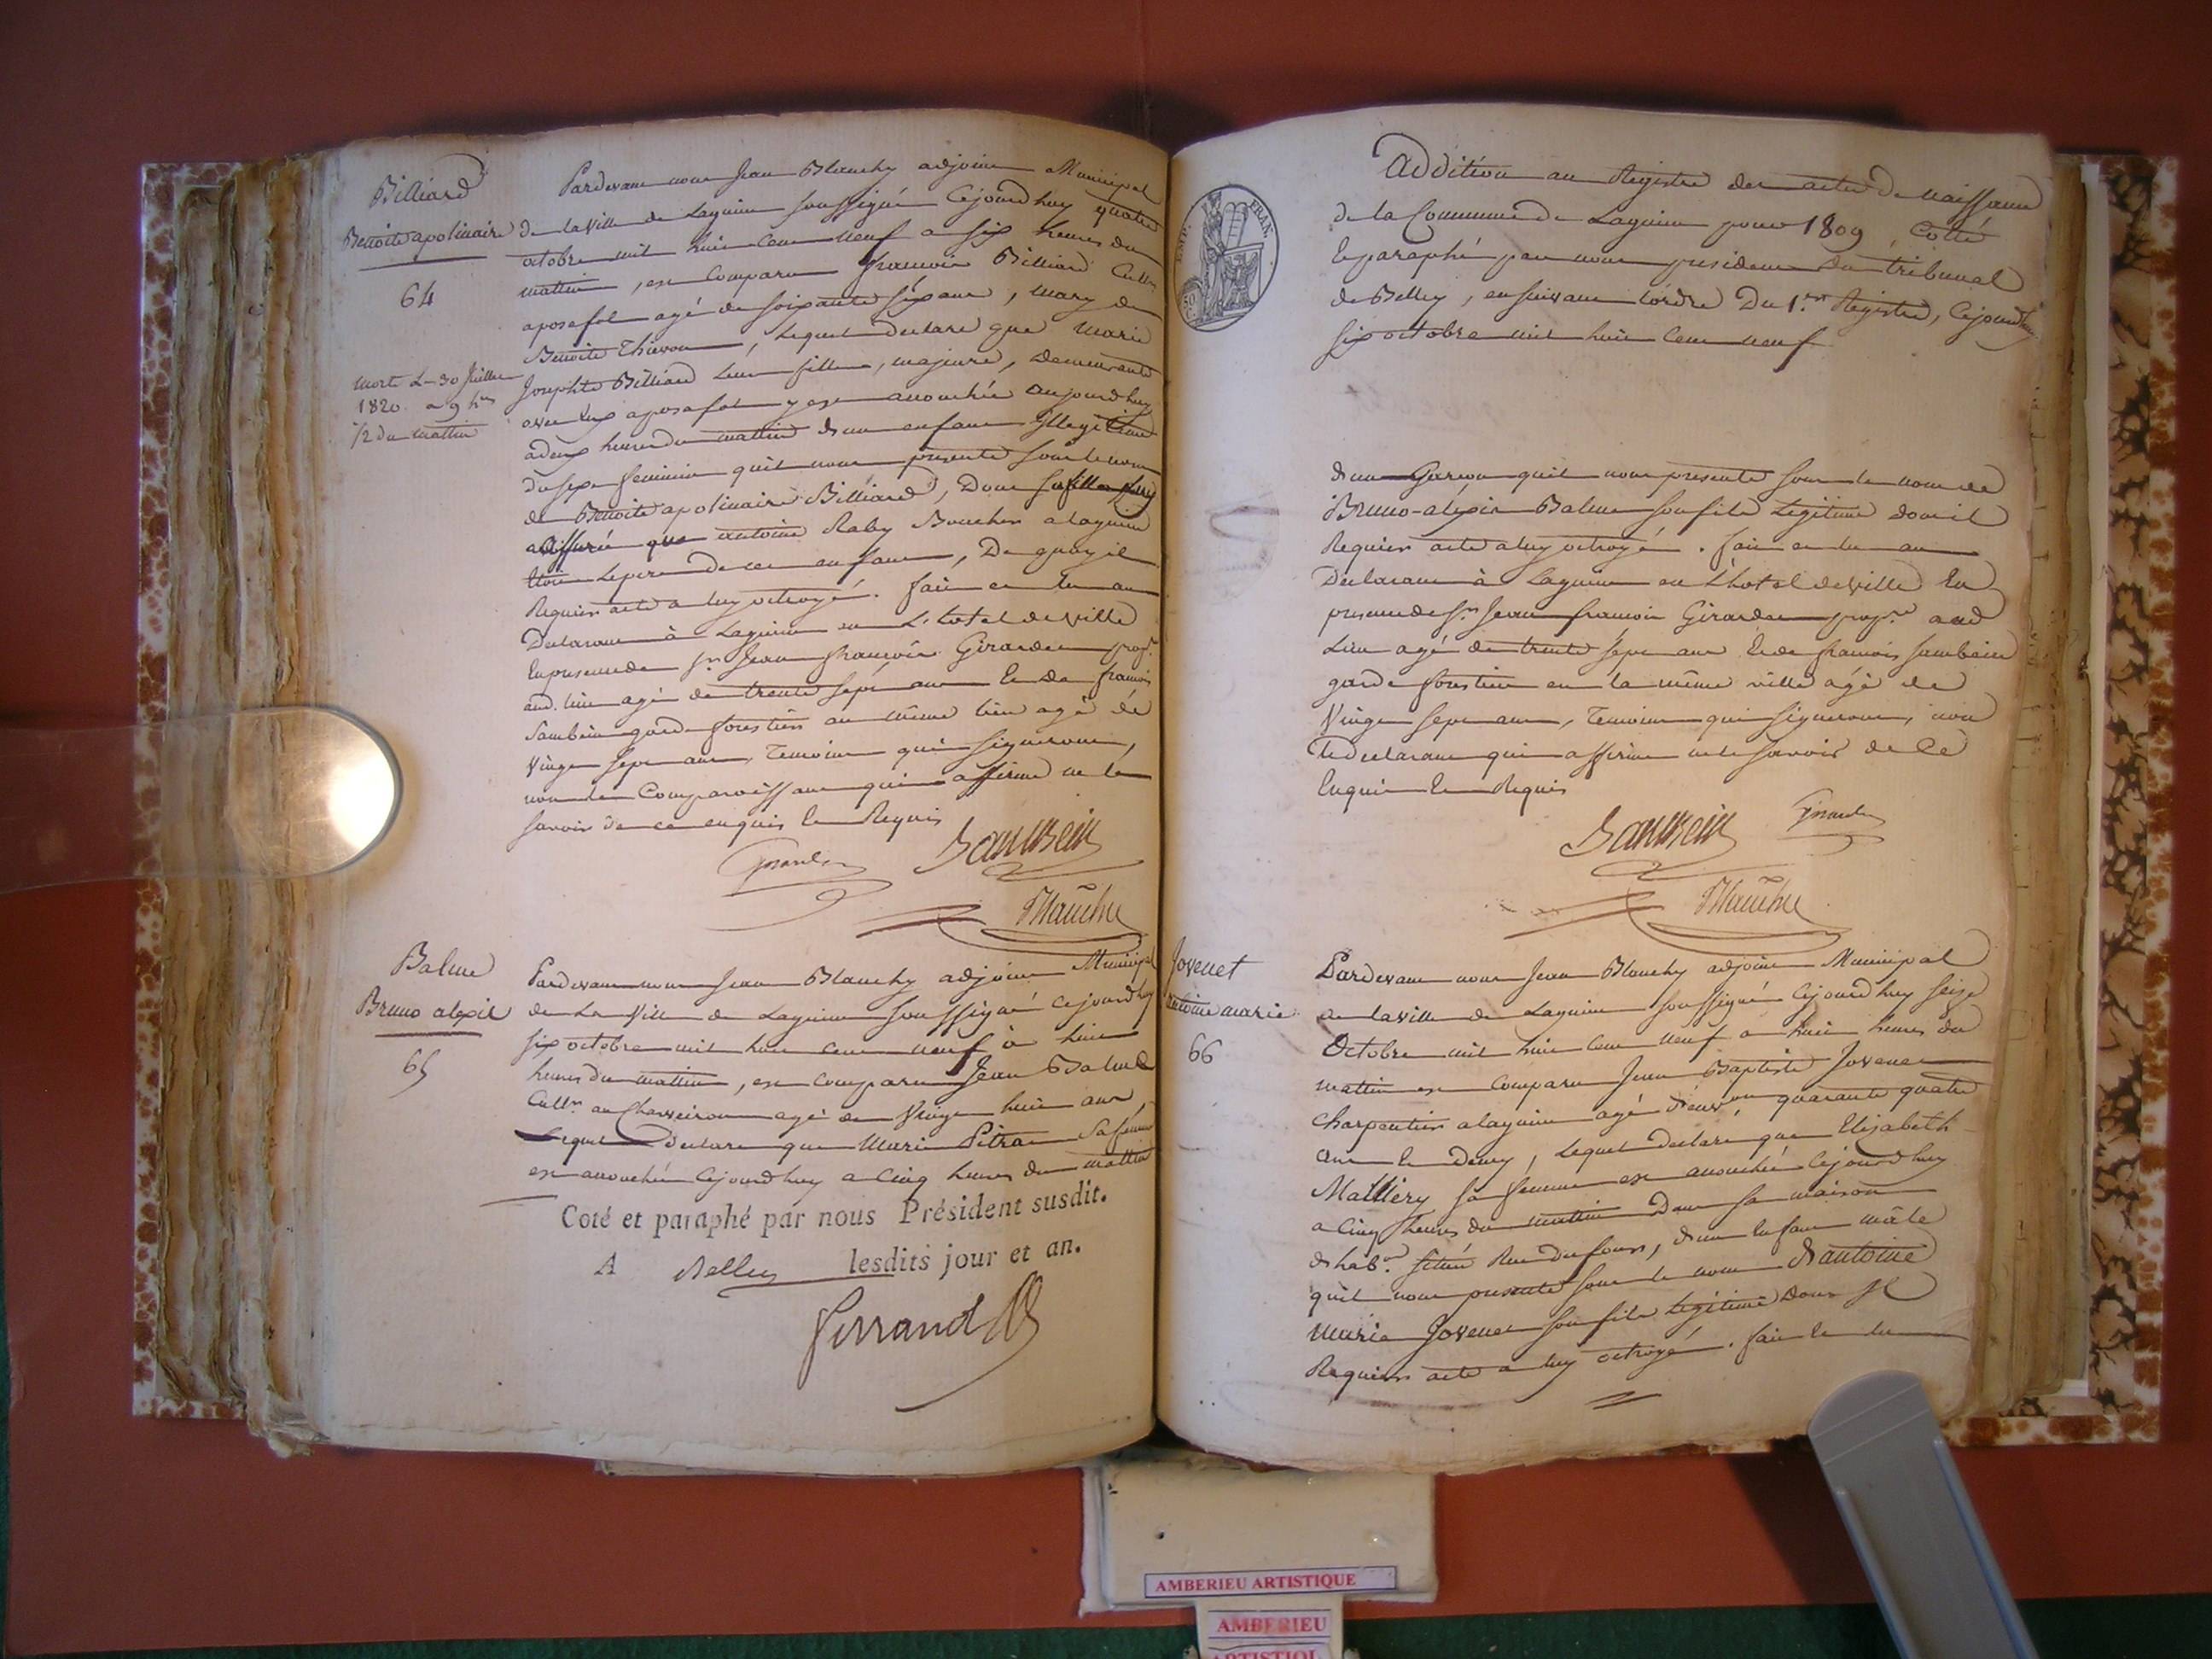 Billiard
Benoite apolinaire
64
morte le 30 Juillet
1820 a 9 h.res
1/2 du mattin
Pardevant nous Jean Blanchy adjoint Municipal
de la ville de Lagnieu soussigné Cejourdhuy quatre
octobre mil huit cent neuf a six heures du
mattin, est Comparu francois Billiard Cult.r
a posafol agé de soixante six ans, mary de
Benoite Thievon, Lequel declare que Marie
Josephte Billiard leur fille, majeure, demeurante
avec eux a posafol y est accouchée aujourdhuy
à deux heures du mattin d'un enfant yllegitime
du sexe feminin quil nous presente sous le nom
de Benoite apolinaire Billiard, Dont sa fille
a assuré que antoine Raby Boucher a lagnieu
etoit le pere de cet enfant, De quoy il
Requier acte a luy octroyé. fait et lu au
Declarant à Lagnieu en L'hotel de ville
En presence de s.r Jean francois Girardet prop.re
aud. lieu agé de trente sept ans et de francois
Sambein garde forestier au même lieu agé de
vingt sept ans, Temoins qui signeront,
non le Comparoissant qui a affirmé ne le
savoir de ce enquis et Requis
Girardet Sambein
Blanchy
Balme
Bruno alexis
65
Pardevant nous Jean Blanchy adjoint Municipal
de La Ville de Lagnieu soussigné cejourdhuy
six octobre mil huit cent neuf à huit
heures du mattin, est comparu Jean Balme
Cult.r au Charveiron agé de vingt huit ans,
Lequel declare que Marie Pitra sa femme
est accouchée Cejourdhuy a Cinq heures du mattin
Coté et paraphé par nous Président susdit.
A Belley lesdits jour et an.
Ferrand
EMP. FRAN.
50
C.
Addition au Registre des actes de naissance
de la Commune de Lagnieu pour 1809 Cotté
et paraphé par nous president du tribunal
de Belley, en suivant l'ordre Du 1.er Registre, Cejourdhuy
six octobre mil huit cent neuf
d'un Garcon quil nous presente sous le nom de
Bruno-alexis Balme son fils Legitime dont il
Requier acte a luy octroyé. fait et lu au
Declarant à Lagnieu en L'hotel de ville En
presence de s.r Jean francois Girardet prop.re aud
Lieu agé de trente sept ans et de francois Sambein
garde forestier en la même ville agé de
vingt sept ans, Temoins qui signeront, non
le declarant qui a affirmé ne le savoir de Ce
Enquis et Requis
Sambein Girardet
Blanchy
Jovenet
antoine marie
66
Pardevant nous Jean Blanchy adjoint Municipal
de la ville de Lagnieu soussigné Cejourdhuy seize
Octobre mil huit cent neuf a huit heures du
mattin est Comparu Jean Baptiste Jovenet
charpentier a lagnieu agé d'env.on quarante quatre
ans et demy, Lequel Declare que Elizabeth
Malliery sa femme est accouchée Cejourdhuy
a Cinq heures du mattin Dans sa maison
d'hab.on située Rue du four, d'un Enfant mâle
quil nous presente sous le nom d'antoine
Marie Jovenet son fils Legitime dont il
Requier acte a luy octroyé. fait et lu
AMBERIEU ARTISTIQUE
AMBERIEU
ARTISTIQUE